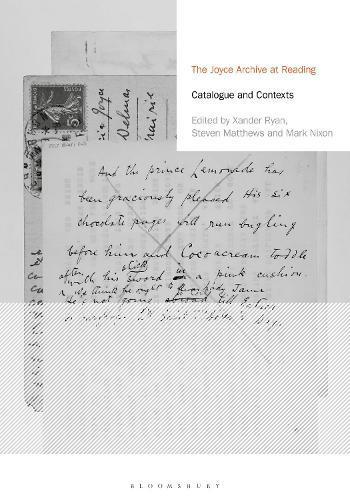 The Joyce Archive at Reading
Catalogue and Contexts
Edited by Xander Ryan,
Steven Matthews and Mark Nixon
Joyce
Delmas
And the prince Lemonade has
been graciously pleased His six
chocolate pages will run bugling
before him and Cococream toddle
after stick
with his sword in a pink cushion.
We think he ought to
till Easter
BLOOMSBURY